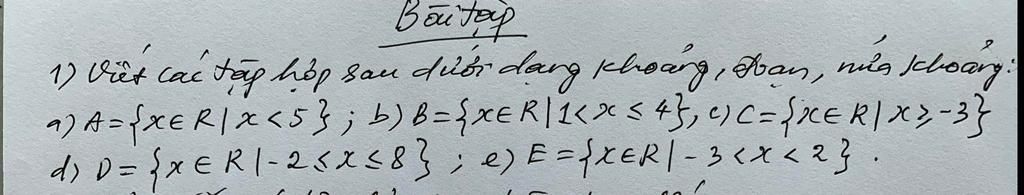 Bài tập
1) Viết các tập hợp sau dưới dạng khoảng, đoạn, nửa khoảng:
a) A = {x ∈ R | x < 5} ; b) B = {x ∈ R | 1 < x ≤ 4}, c) C = {x ∈ R | x ≥ -3}
d) D = {x ∈ R | -2 ≤ x ≤ 8} ; e) E = {x ∈ R | -3 < x < 2} .